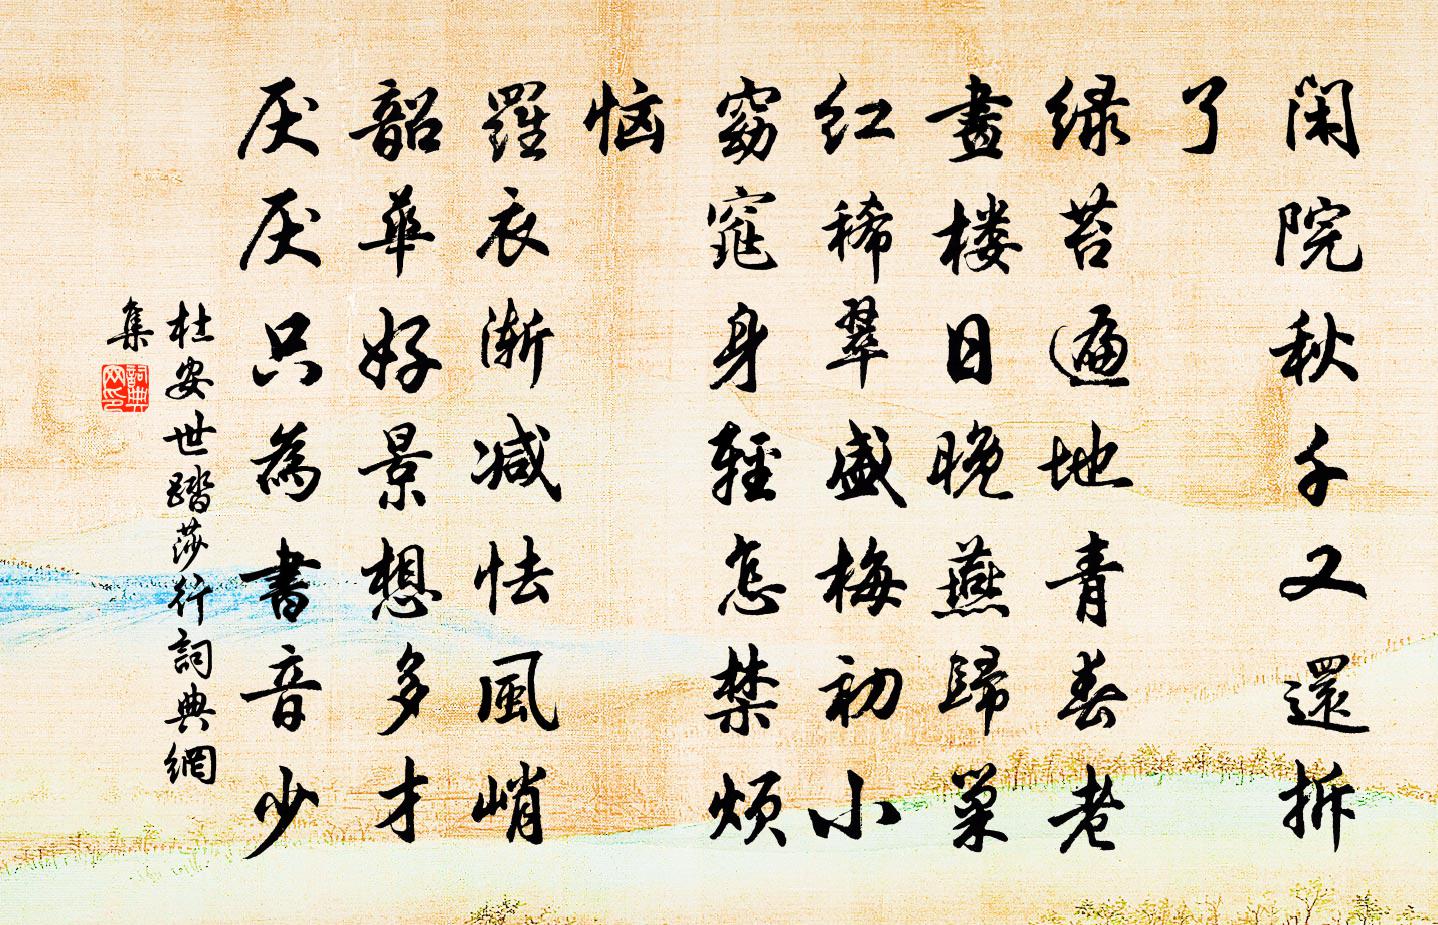 闲院秋千又還拆
了
绿苔遍地青春老
畫楼日晚燕歸巢
红稀翠盛梅初小
窈窕身輕怎禁烦
恼
羅衣渐减怯風峭
韶華好景想多才
厌厌只為書音少
杜安世踏莎行詞典網
集
詞典网印